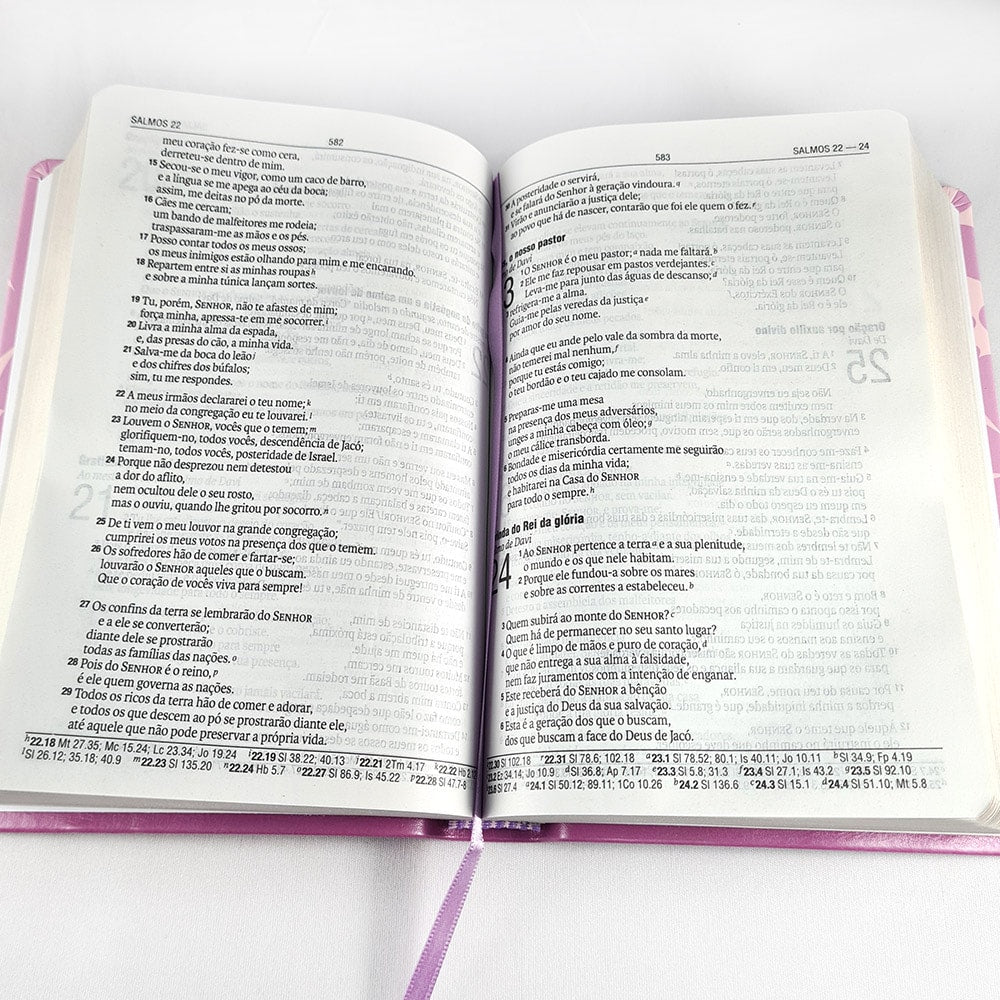 SALMOS 22
582
meu coração fez-se como cera,
derreteu-se dentro de mim.
15 Secou-se o meu vigor, como um caco de barro,
e a língua se me apega ao céu da boca;
assim, me deitas no pó da morte.
16 Cães me cercam;
um bando de malfeitores me rodeia;
traspassaram-me as mãos e os pés.
17 Posso contar todos os meus ossos;
os meus inimigos estão olhando para mim e me encarando.
18 Repartem entre si as minhas roupas h
e sobre a minha túnica lançam sortes.
19 Tu, porém, SENHOR, não te afastes de mim;
força minha, apressa-te em me socorrer. i
20 Livra a minha alma da espada,
e, das presas do cão, a minha vida.
21 Salva-me da boca do leão j
e dos chifres dos búfalos;
sim, tu me respondes.
22 A meus irmãos declararei o teu nome; k
no meio da congregação eu te louvarei. l
23 Louvem o SENHOR, vocês que o temem; m
glorifiquem-no, todos vocês, descendência de Jacó;
temam-no, todos vocês, posteridade de Israel.
24 Porque não desprezou nem detestou
a dor do aflito,
nem ocultou dele o seu rosto,
mas o ouviu, quando lhe gritou por socorro. n
25 De ti vem o meu louvor na grande congregação;
cumprirei os meus votos na presença dos que o temem.
26 Os sofredores hão de comer e fartar-se;
louvarão o SENHOR aqueles que o buscam.
Que o coração de vocês viva para sempre!
27 Os confins da terra se lembrarão do SENHOR
e a ele se converterão;
diante dele se prostrarão
todas as famílias das nações. o
28 Pois do SENHOR é o reino, p
é ele quem governa as nações.
29 Todos os ricos da terra hão de comer e adorar,
e todos os que descem ao pó se prostrarão diante ele,
até aquele que não pode preservar a própria vida.
h 22.18 Mt 27.35; Mc 15.24; Lc 23.34; Jo 19.24 i 22.19 Sl 38.22; 40.13 j 22.21 2Tm 4.17 k 22.22 Hb 2.12
l Sl 26.12; 35.18; 40.9 m 22.23 Sl 135.20 n 22.24 Hb 5.7 o 22.27 Sl 86.9; Is 45.22 p 22.28 Sl 47.7-8
583
SALMOS 22 — 24
30 A posteridade o servirá,
e se falará do Senhor à geração vindoura. q
31 Virão e anunciarão a justiça dele;
ao povo que há de nascer, contarão que foi ele quem o fez. r
o nosso pastor
de Davi
3
1 O SENHOR é o meu pastor; a nada me faltará. b
2 Ele me faz repousar em pastos verdejantes. c
Leva-me para junto das águas de descanso; d
3 refrigera-me a alma.
Guia-me pelas veredas da justiça e
por amor do seu nome.
4 Ainda que eu ande pelo vale da sombra da morte,
não temerei mal nenhum, f
porque tu estás comigo;
o teu bordão e o teu cajado me consolam.
5 Preparas-me uma mesa
na presença dos meus adversários,
unges a minha cabeça com óleo; g
o meu cálice transborda.
6 Bondade e misericórdia certamente me seguirão
todos os dias da minha vida;
e habitarei na Casa do SENHOR
para todo o sempre. h
do Rei da glória
de Davi
24
1 Ao SENHOR pertence a terra a e a sua plenitude,
o mundo e os que nele habitam.
2 Porque ele fundou-a sobre os mares
e sobre as correntes a estabeleceu. b
3 Quem subirá ao monte do SENHOR? c
Quem há de permanecer no seu santo lugar?
4 O que é limpo de mãos e puro de coração, d
que não entrega a sua alma à falsidade,
nem faz juramentos com a intenção de enganar.
5 Este receberá do SENHOR a bênção
e a justiça do Deus da sua salvação.
6 Esta é a geração dos que o buscam,
dos que buscam a face do Deus de Jacó.
22.30 Sl 102.18 r 22.31 Sl 78.6; 102.18 a 23.1 Sl 78.52; 80.1; Is 40.11; Jo 10.11 b Sl 34.9; Fp 4.19
23.2 Ez 34.14; Jo 10.9 d Sl 36.8; Ap 7.17 e 23.3 Sl 5.8; 31.3 f 23.4 Sl 27.1; Is 43.2 g 23.5 Sl 92.10
23.6 Sl 27.4 a 24.1 Sl 50.12; 89.11; 1Co 10.26 b 24.2 Sl 136.6 c 24.3 Sl 15.1 d 24.4 Sl 51.10; Mt 5.8